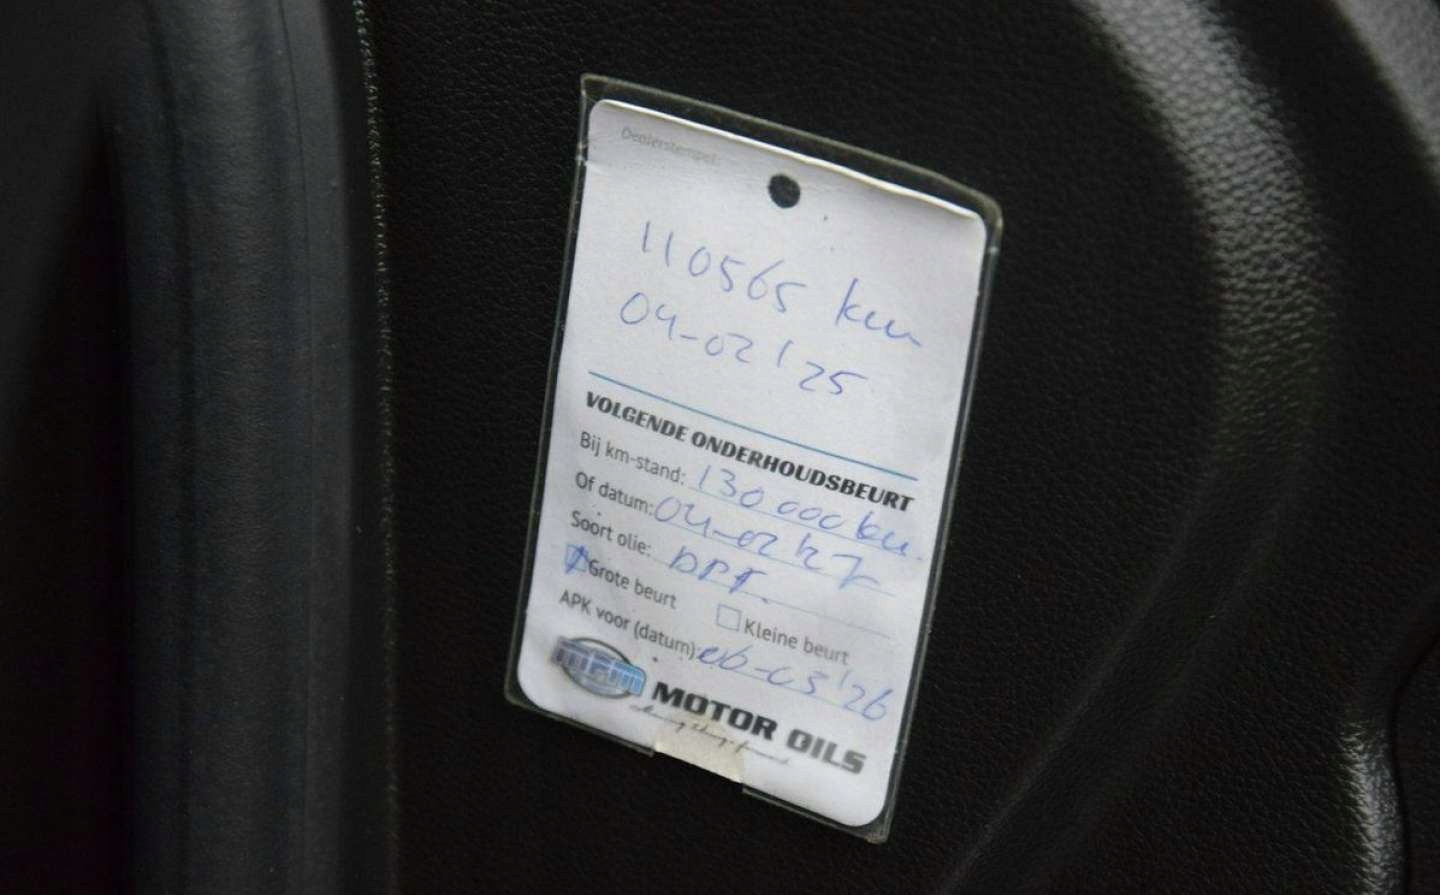 Dealerstempel:
110565 km
04-02'25
VOLGENDE ONDERHOUDSBEURT
Bij km-stand: 130 000 km.
Of datum: 04-02'27
Soort olie: DPF.
Grote beurt Kleine beurt
APK voor (datum): 06-03'26
MPM MOTOR OILS